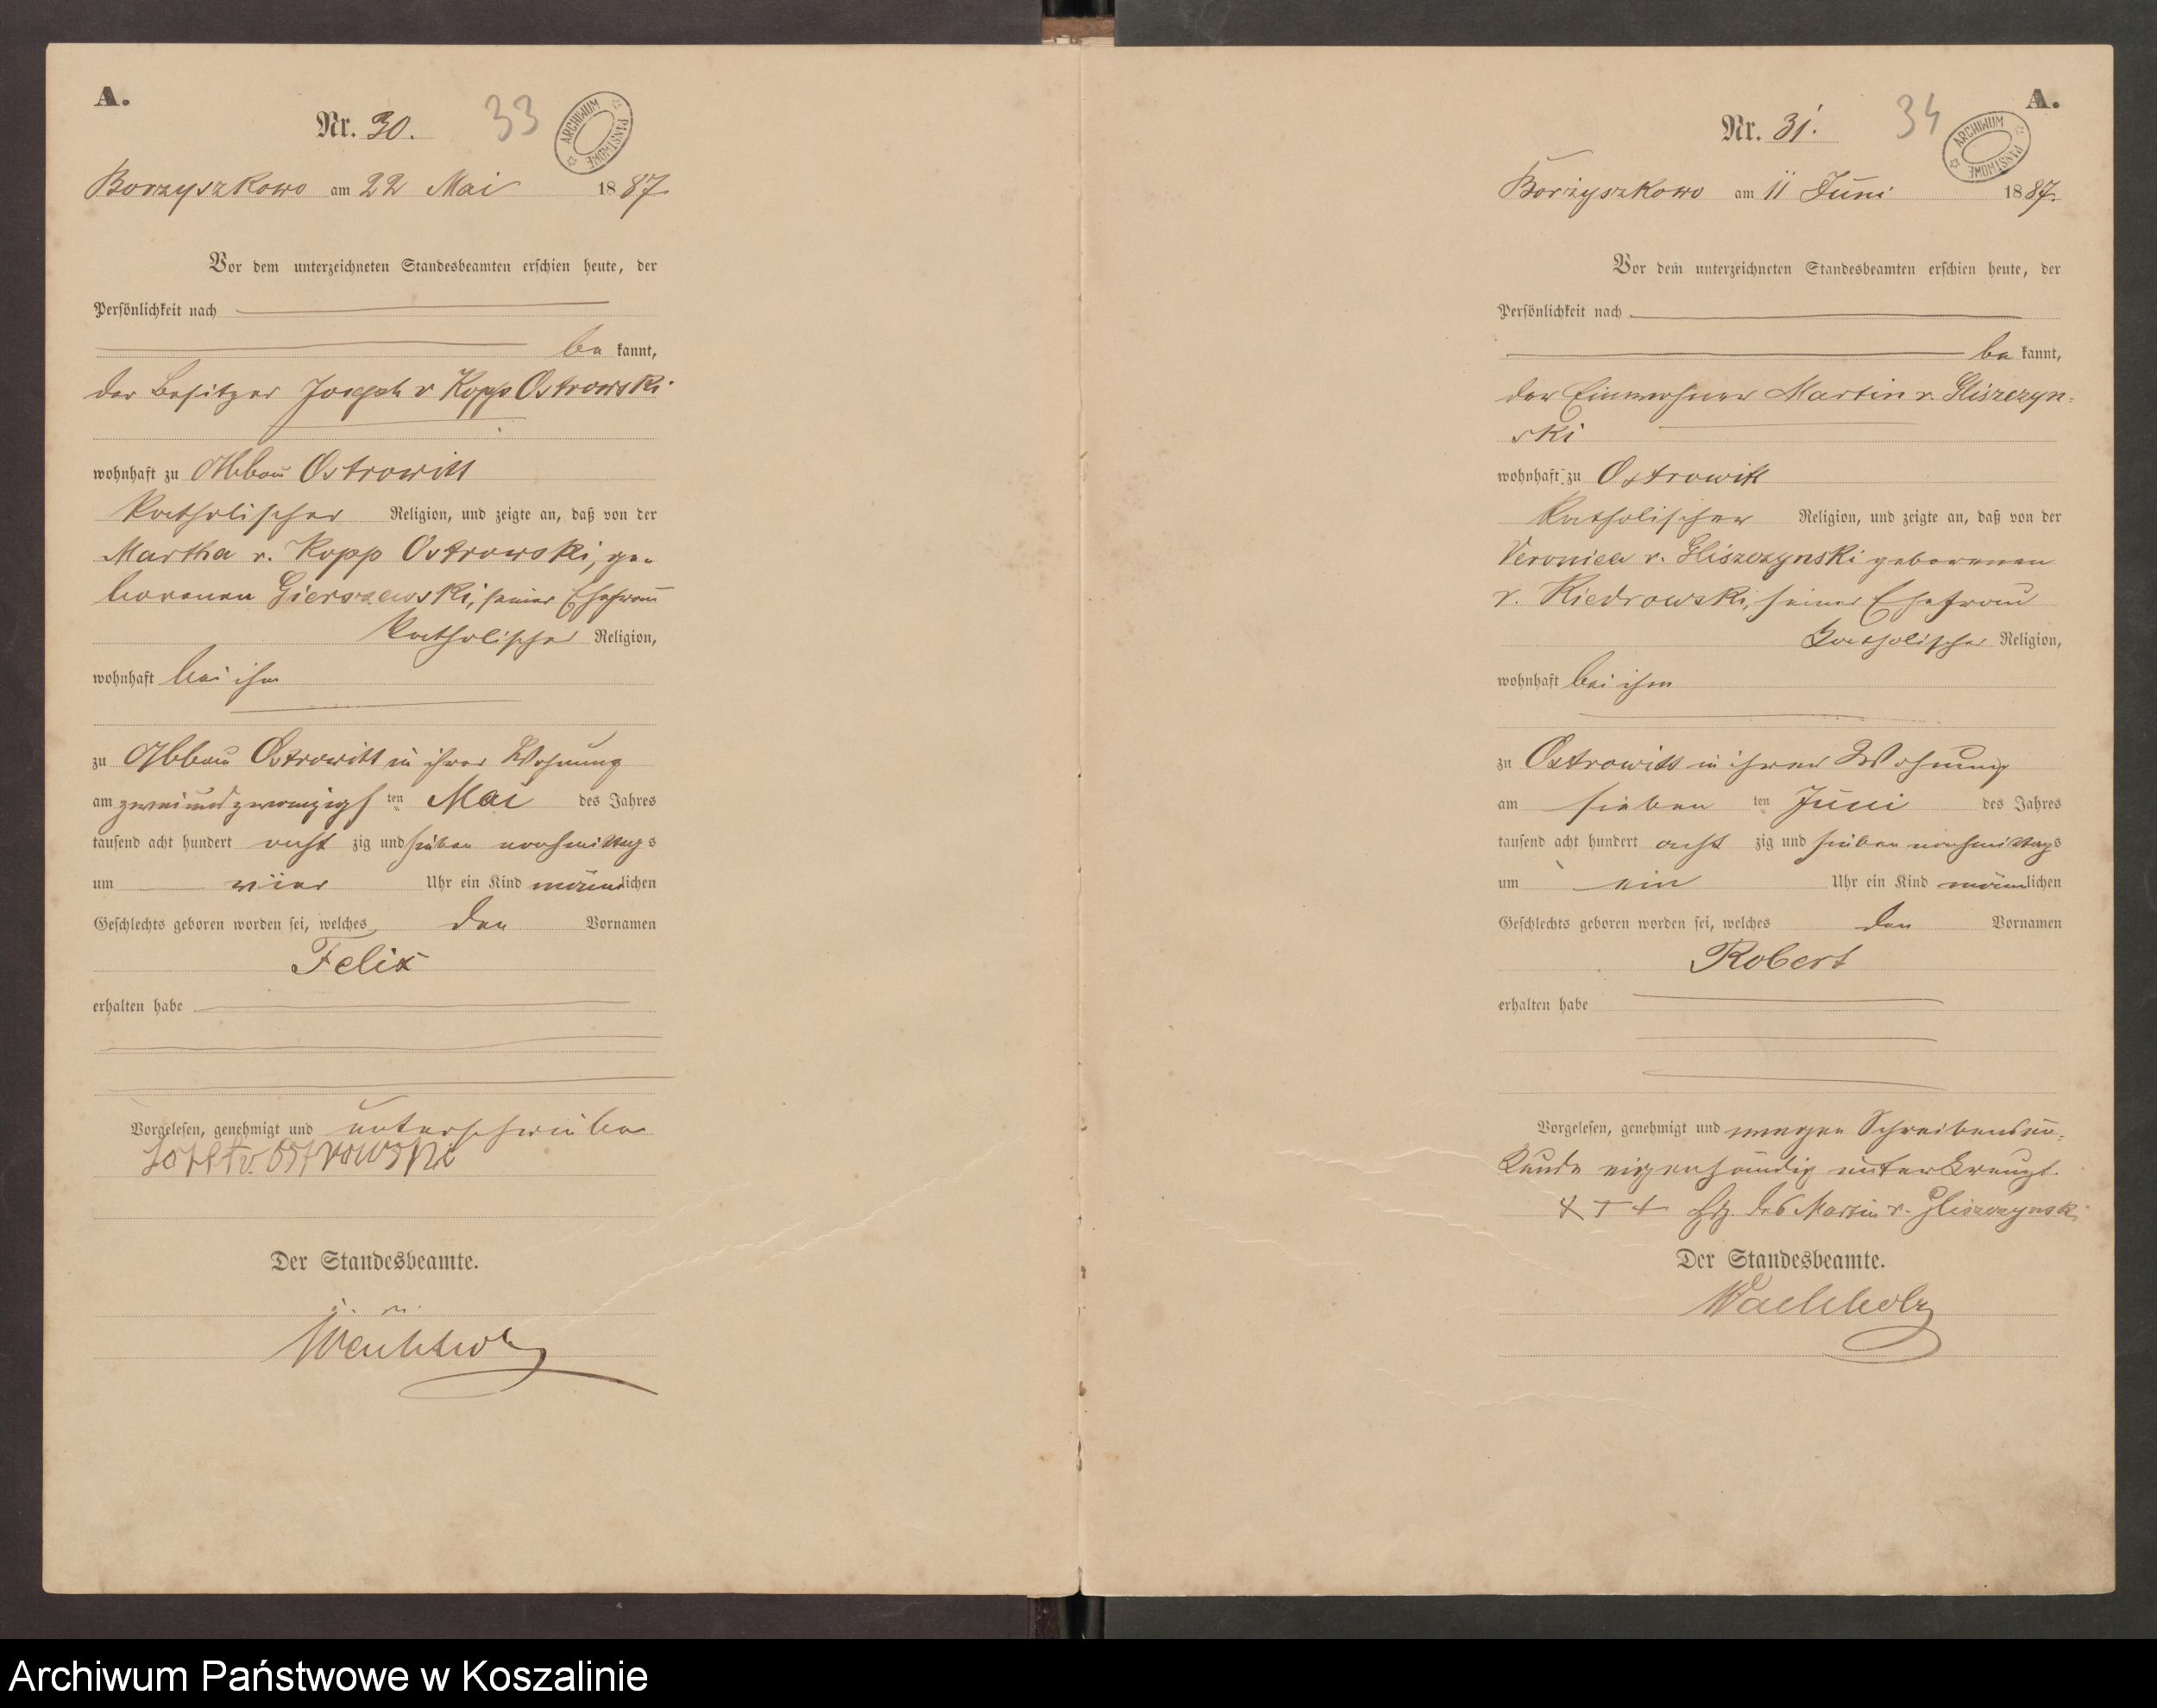 A.
Nr. 30.
33
ARCHIWUM PAŃSTWOWE
Borzyszkowo am 22 Mai 1887.
Vor dem unterzeichneten Standesbeamten erschien heute, der
Persönlichkeit nach
be kannt,
der Besitzer Joseph v Kopp Ostrowski
wohnhaft zu Abbau Ostrowitt
katholischer Religion, und zeigte an, daß von der
Martha v. Kopp Ostrowski, ge-
borenen Gierszewski, seiner Ehefrau
katholischer Religion,
wohnhaft bei ihm
zu Abbau Ostrowitt in ihrer Wohnung
am zweiundzwanzigsten Mai des Jahres
tausend acht hundert achtzig und sieben nachmittags
um vier Uhr ein Kind männlichen
Geschlechts geboren worden sei, welches den Vornamen
Felix
erhalten habe
Vorgelesen, genehmigt und unterschrieben
v. Ostrowski
Der Standesbeamte.
Wachholz
A.
Nr. 31.
34
ARCHIWUM PAŃSTWOWE
Borzyszkowo am 11 Juni 1887.
Vor dem unterzeichneten Standesbeamten erschien heute, der
Persönlichkeit nach
be kannt,
der Einwohner Martin v. Gliszczyn-
ski
wohnhaft zu Ostrowitt
katholischer Religion, und zeigte an, daß von der
Veronica v. Gliszczynski geborenen
v. Kiedrowski, seiner Ehefrau
katholischer Religion,
wohnhaft bei ihm
zu Ostrowitt in ihrer Wohnung
am sieben ten Juni des Jahres
tausend acht hundert achtzig und sieben nachmittags
um ein Uhr ein Kind männlichen
Geschlechts geboren worden sei, welches den Vornamen
Robert
erhalten habe
Vorgelesen, genehmigt und wegen Schreibensun-
kunde eigenhändig unterkreuzt.
+ + + Hz. des Martin v. Gliszczynski
Der Standesbeamte.
Wachholz
Archiwum Państwowe w Koszalinie